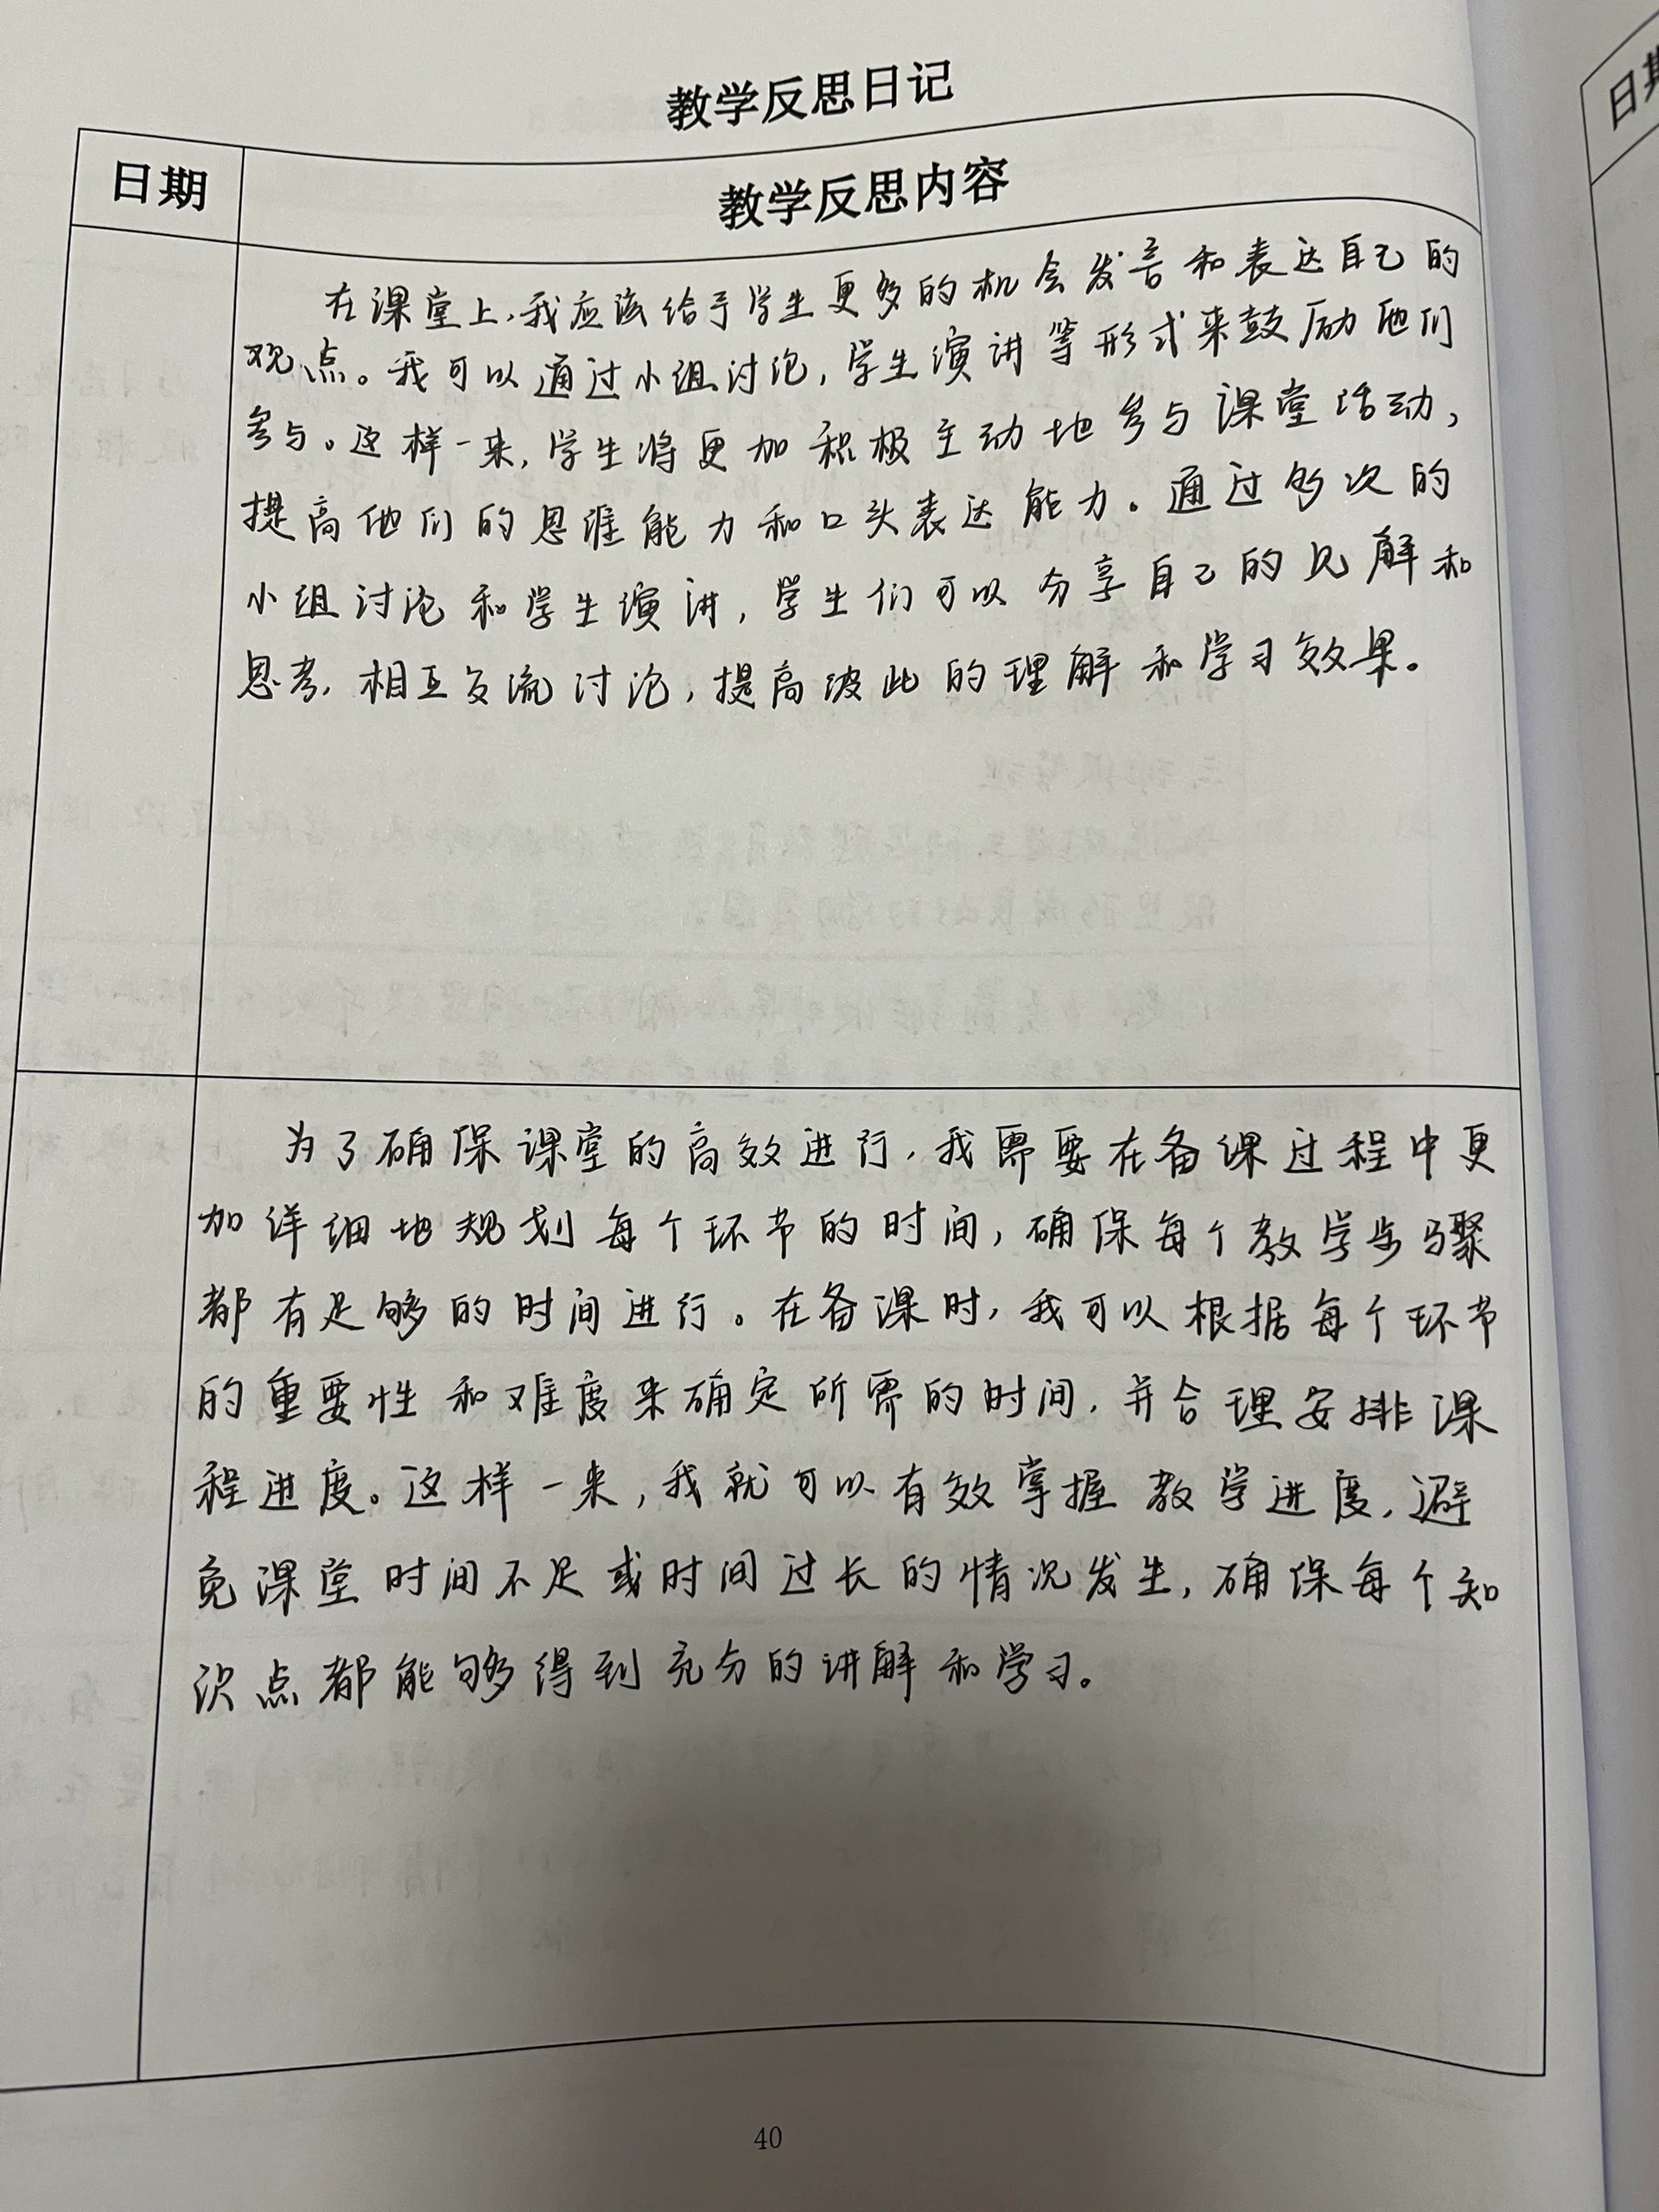 教学反思日记
日期
教学反思内容
在课堂上,我应该给予学生更多的机会发言和表达自己的
观点。我可以通过小组讨论,学生演讲等形式来鼓励他们
参与。这样一来,学生将更加积极主动地参与课堂活动,
提高他们的思维能力和口头表达能力。通过多次的
小组讨论和学生演讲,学生们可以分享自己的见解和
思考,相互交流讨论,提高彼此的理解和学习效果。
为了确保课堂的高效进行,我需要在备课过程中更
加详细地规划每个环节的时间,确保每个教学步骤
都有足够的时间进行。在备课时,我可以根据每个环节
的重要性和难度来确定所需的时间,并合理安排课
程进度。这样一来,我就可以有效掌握教学进度,避
免课堂时间不足或时间过长的情况发生,确保每个知
识点都能够得到充分的讲解和学习。
40
日期